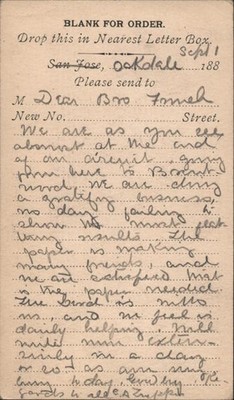 BLANK FOR ORDER.
Drop this in Nearest Letter Box.
Sept 1
San Jose, Oakdale 188
Please send to
M Dear Bro French
New No. Street.
We are as you see
almost at the end
of our circuit going
from here to
ward, we are doing
a gratifying business,
no day failing to
show the most flat
tering results. The
paper is making
many friends, and
we are satisfied that
is the paper needed.
The Lord is with
us, and we feel is
daily helping. Will
write more exten
sively in a day
or so as am very
busy today. Good by Re
gards to all